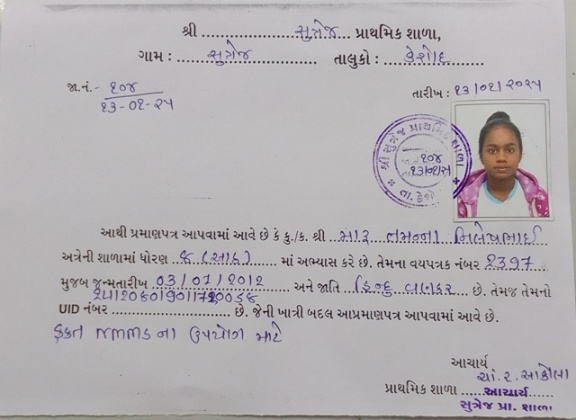 શ્રી ........ સુત્રેજ ... પ્રાથમિક શાળા,
ગામ : સુત્રેજ તાલુકો : કેશોદ
જા.નં. - ૧૦૪
૧૩-૦૧-૨૫
તારીખ : ૧૩/૦૧/૨૦૨૫
શ્રી સુત્રેજ પ્રાથમિક શાળા
૧૦૪
૧૩/૦૧/૨૫
આથી પ્રમાણપત્ર આપવામાં આવે છે કે કુ./ક. શ્રી મારૂ તમન્ના નિલેષભાઈ
અત્રેની શાળામાં ધોરણ ૭ (સાત) માં અભ્યાસ કરે છે. તેમના વયપત્રક નંબર ૨૩૧૭
મુજબ જન્મતારીખ 03/07/2012 અને જાતિ હિન્દુ વણકર છે. તેમજ તેમનો
UID નંબર છે. જેની ખાત્રી બદલ આ પ્રમાણપત્ર આપવામાં આવે છે.
ફક્ત ના ઉપયોગ માટે
આચાર્ય
પ્રાથમિક શાળા આચાર્ય
સુત્રેજ પ્રા. શાળા